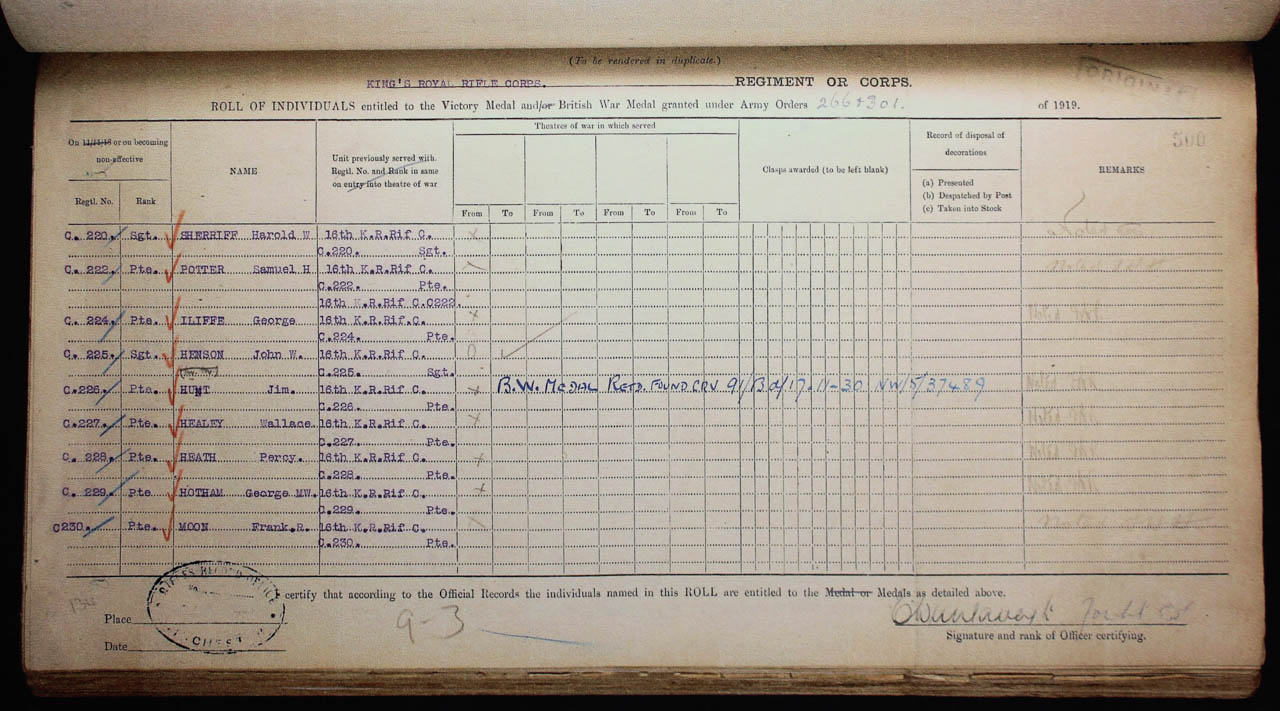 (To be rendered in duplicate.)
ORIGINAL
KING'S ROYAL RIFLE CORPS. REGIMENT OR CORPS.
ROLL OF INDIVIDUALS entitled to the Victory Medal and/or British War Medal granted under Army Orders 266 & 301. of 1919.
500
On 11/11/18 or on becoming non-effective
Regtl. No. Rank
NAME
Unit previously served with.
Regtl. No. and Rank in same
on entry into theatre of war
Theatres of war in which served
From To From To From To From To
Clasps awarded (to be left blank)
Record of disposal of decorations
(a) Presented
(b) Despatched by Post
(c) Taken into Stock
REMARKS
C. 220. Sgt. SHERRIFF Harold W 16th K.R.Rif C. x
C.220. Sgt.
C. 222. Pte. POTTER Samuel H 16th K.R.Rif C.
C.222. Pte.
16th K.R.Rif C.C222.
C. 224. Pte. ILIFFE George 16th K.R.Rif.C. x
C.224. Pte.
C. 225. Sgt. HENSON John W. 16th K.R.Rif C.
C.225. Sgt.
C.226. Pte. HUNT Jim. 16th K.R.Rif C. x B.W. MEDAL RETD. FOUND CRV 91/B d/17-11-30 NW/5/37489
C.226. Pte.
C.227. Pte. HEALEY Wallace. 16th K.R.Rif C. x
C.227. Pte.
C. 228. Pte. HEATH Percy. 16th K.R.Rif C. x
C.228. Pte.
C. 229. Pte HOTHAM George MW. 16th K.R.Rif C. x
C.229. Pte.
C230. Pte. MOON Frank.R. 16th K.R.Rif C.
C.230. Pte.
certify that according to the Official Records the individuals named in this ROLL are entitled to the Medal or Medals as detailed above.
Place
Date
9-3
Signature and rank of Officer certifying.